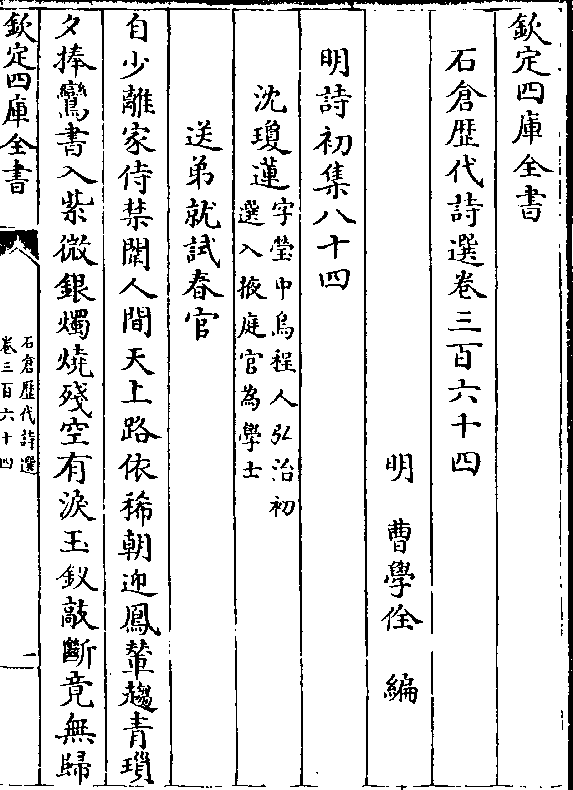 欽定四庫全書
石倉歴代詩選卷三百六十四
明 曹學佺 編
明詩初集八十四
沈瓊蓮字瑩中烏程人弘治初
選入掖庭官為學士
送弟就試春官
自少離家侍禁闈人間天上路依稀朝迎鳳輦趨青瑣
夕捧鸞書入紫微銀燭燒殘空有淚玉釵敲斷竟無歸
欽定四庫全書
石倉歴代詩選
卷三百六十四
一